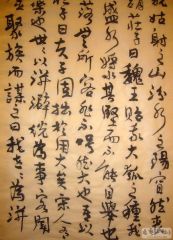 姑射之山汾水之陽窅然喪
莊子曰魏王貽我大瓠之種我
盛水漿其堅不能自舉也
落無所容非不呺然大也吾
莊子曰夫子固拙於用大矣宋人
世世以洴澼絖為事客聞
聚族而謀之曰我世世為洴